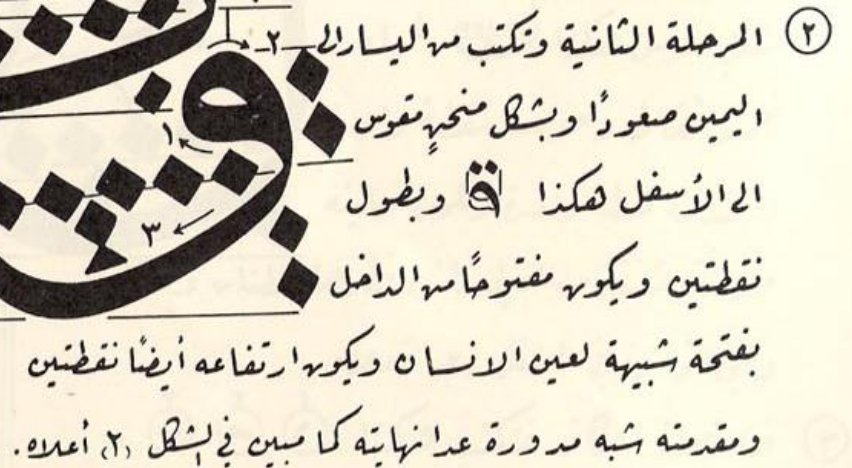 ٢ المرحلة الثانية وتكتب من اليسار الى
اليمين صعودًا وبشكل منحنٍ مقوس
الى الأسفل هكذا وبطول
نقطتين ويكون مفتوحًا من الداخل
بفتحة شبيهة لعين الانسان ويكون ارتفاعه أيضًا نقطتين
ومقدمته شبه مدورة عدا نهايته كما مبين في الشكل (٢) أعلاه.
٢
١
٣